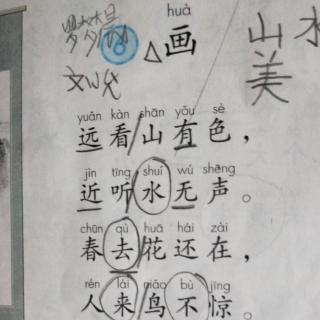 huà
画
山水
美
yuǎn kàn shān yǒu sè
远看山有色，
jìn tīng shuǐ wú shēng
近听水无声。
chūn qù huā hái zài
春去花还在，
rén lái niǎo bù jīng
人来鸟不惊。